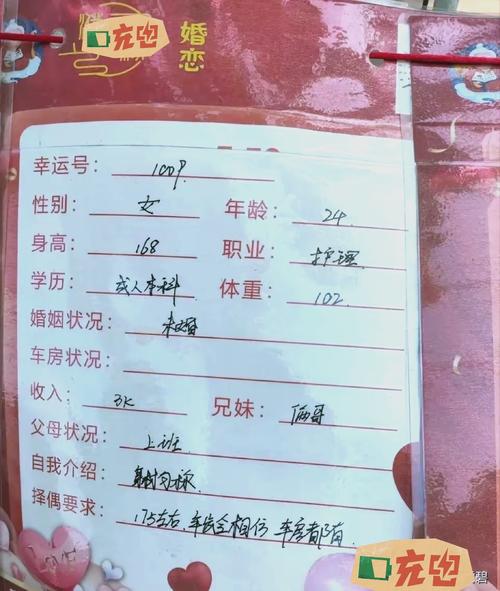 充电 婚恋 充电
幸运号: 1009
性别: 女 年龄: 24
身高: 168 职业: 护理
学历: 成人本科 体重: 102
婚姻状况: 未婚
车房状况:
收入: 3K 兄妹: 俩哥
父母状况: 上班
自我介绍:
择偶要求: 175左右, 年龄相仿 车房都有
充电 碧